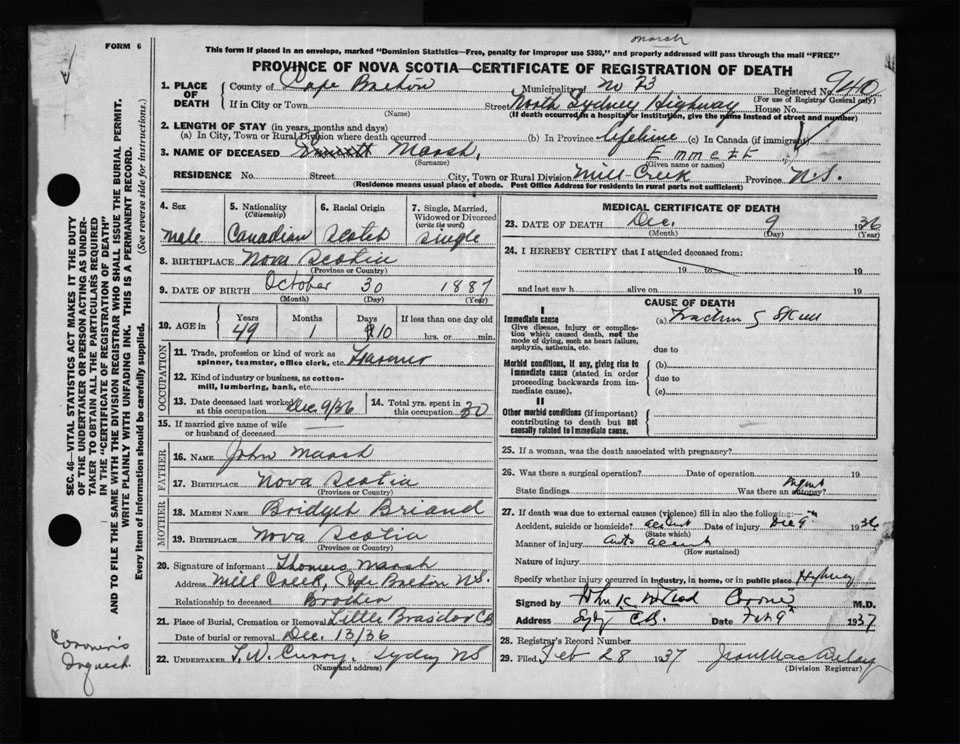 FORM 6
Marsh
This form if placed in an envelope, marked "Dominion Statistics—Free, penalty for improper use $300," and properly addressed will pass through the mail "FREE"
PROVINCE OF NOVA SCOTIA—CERTIFICATE OF REGISTRATION OF DEATH
1. PLACE OF DEATH
County of Cape Breton Municipality of No 73 Registered No. 940
(For use of Registrar General only)
If in City or Town (Name) Street North Sydney Highway House No.
(If death occurred in a hospital or institution, give the name instead of street and number)
2. LENGTH OF STAY (in years, months and days)
(a) In City, Town or Rural Division where death occurred (b) In Province Lifetime (c) In Canada (if immigrant)
3. NAME OF DECEASED Emmett Marsh, Emmett
(Surname) (Given name or names)
RESIDENCE No. Street City, Town or Rural Division Mill Creek Province N.S.
(Residence means usual place of abode. Post Office Address for residents in rural parts not sufficient)
4. Sex male
5. Nationality (Citizenship) Canadian
6. Racial Origin Scotch
7. Single, Married, Widowed or Divorced (write the word) Single
8. BIRTHPLACE Nova Scotia
(Province or Country)
9. DATE OF BIRTH October 30 1887
(Month) (Day) (Year)
10. AGE in Years Months Days If less than one day old
49 1 10 hrs. or min.
OCCUPATION
11. Trade, profession or kind of work as spinner, teamster, office clerk, etc. Farmer
12. Kind of industry or business, as cotton-mill, lumbering, bank, etc.
13. Date deceased last worked at this occupation Dec 9/36
14. Total yrs. spent in this occupation 30
15. If married give name of wife or husband of deceased
FATHER
16. NAME John Marsh
17. BIRTHPLACE Nova Scotia
(Province or Country)
MOTHER
18. MAIDEN NAME Bridget Briand
19. BIRTHPLACE Nova Scotia
(Province or Country)
20. Signature of informant Thomas Marsh
Address Mill Creek, Cape Breton N.S.
Relationship to deceased Brother
21. Place of Burial, Cremation or Removal Little Brasdor CB
Date of burial or removal Dec. 13/36
22. UNDERTAKER T.W. Curry, Sydney NS
(Name and address)
MEDICAL CERTIFICATE OF DEATH
23. DATE OF DEATH Dec. 9 1936
(Month) (Day) (Year)
24. I HEREBY CERTIFY that I attended deceased from:
19 to 19
and last saw h alive on 19
CAUSE OF DEATH
I
Immediate cause
Give disease, injury or complication which caused death, not the mode of dying, such as heart failure, asphyxia, asthenia, etc.
(a) Fracture of Skull
due to
Morbid conditions, if any, giving rise to immediate cause (stated in order proceeding backwards from immediate cause).
(b)
due to
(c)
II
Other morbid conditions (if important) contributing to death but not causally related to immediate cause.
25. If a woman, was the death associated with pregnancy?
26. Was there a surgical operation? Date of operation 19
State findings Was there an autopsy?
27. If death was due to external causes (violence) fill in also the following:—
Accident, suicide or homicide? Date of injury Dec 9 1936
(State which)
Manner of injury
(How sustained)
Nature of injury
Specify whether injury occurred in industry, in home, or in public place Highway
Signed by M.D.
Address Sydney C.B. Date Feb 9 1937
28. Registrar's Record Number
29. Filed Feb 28 1937
(Division Registrar)
SEC. 46—VITAL STATISTICS ACT MAKES IT THE DUTY
OF THE UNDERTAKER OR PERSON ACTING AS UNDER-
TAKER TO OBTAIN ALL THE PARTICULARS REQUIRED
IN THE "CERTIFICATE OF REGISTRATION OF DEATH"
AND TO FILE THE SAME WITH THE DIVISION REGISTRAR WHO SHALL ISSUE THE BURIAL PERMIT.
WRITE PLAINLY WITH UNFADING INK. THIS IS A PERMANENT RECORD.
Every item of information should be carefully supplied. (See reverse side for instructions.)
Coroner's
Inquest